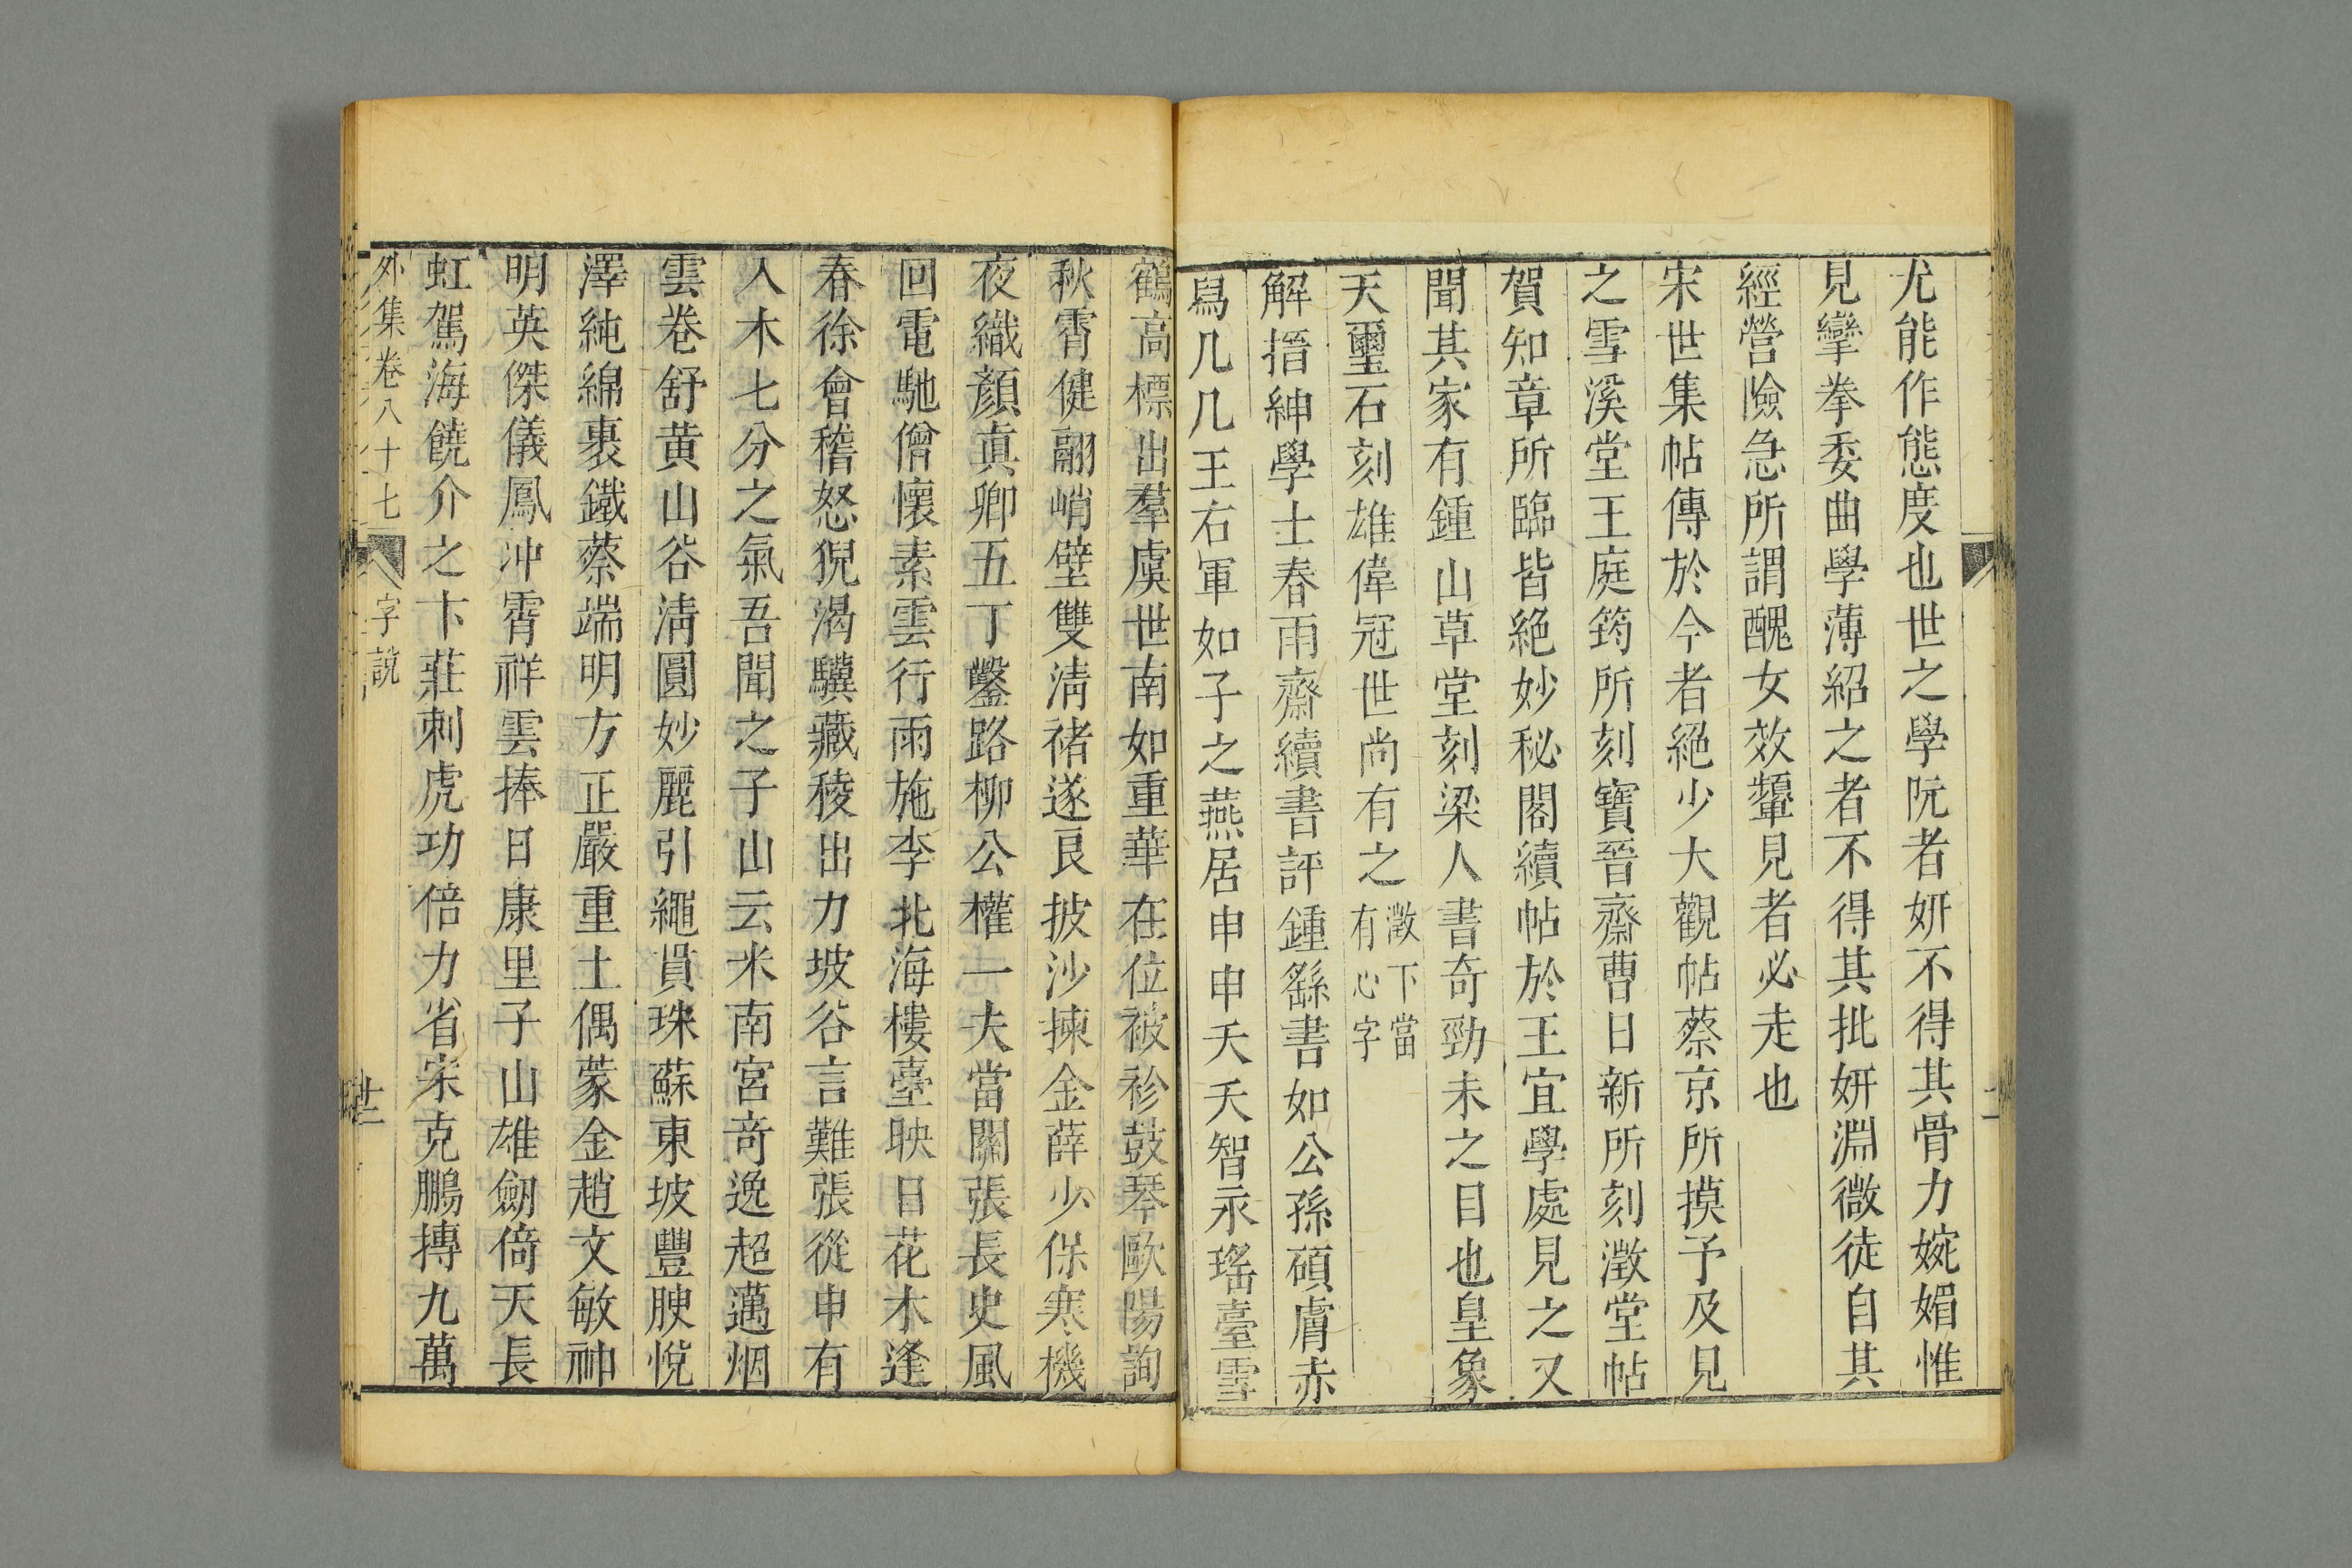 尤能作態度也世之學阮者妍不得其骨力婉媚惟
見攣拳委曲學薄紹之者不得其批妍淵微徒自其
經營險急所謂醜女效顰見者必走也
宋世集帖傳於今者絕少大觀帖蔡京所摸予及見
之雪溪堂王庭筠所刻寶晉齋曹日新所刻澂堂帖
賀知章所臨皆絕妙秘閣續帖於王宜學處見之又
聞其家有鍾山草堂刻梁人書奇勁未之目也皇象
天璽石刻雄偉冠世尚有之澂下當有心字
解搢紳學士春雨齋續書評鍾繇書如公孫碩膚赤
舄几几王右軍如子之燕居申申夭夭智永瑤臺雪
鶴高標出羣虞世南如重華在位被袗鼓琴歐陽詢
秋霄健翮峭壁雙清褚遂良披沙揀金薛少保寒機
夜織顏真卿五丁鑿路柳公權一夫當關張長史風
回電馳僧懷素雲行雨施李北海樓臺映日花木逢
春徐會稽怒猊渴驥藏稜出力坡谷言難張從申有
入木七分之氣吾聞之子山云米南宮竒逸超邁烟
雲卷舒黄山谷清圓妙麗引繩貫珠蘇東坡豐腴悅
澤純綿裹鐵蔡端明方正嚴重土偶蒙金趙文敏神
明英傑儀鳳沖霄祥雲捧日康里子山雄劒倚天長
虹駕海饒介之卞莊刺虎功倍力省宋克鵬摶九萬
外集卷八十七 字說 廿二